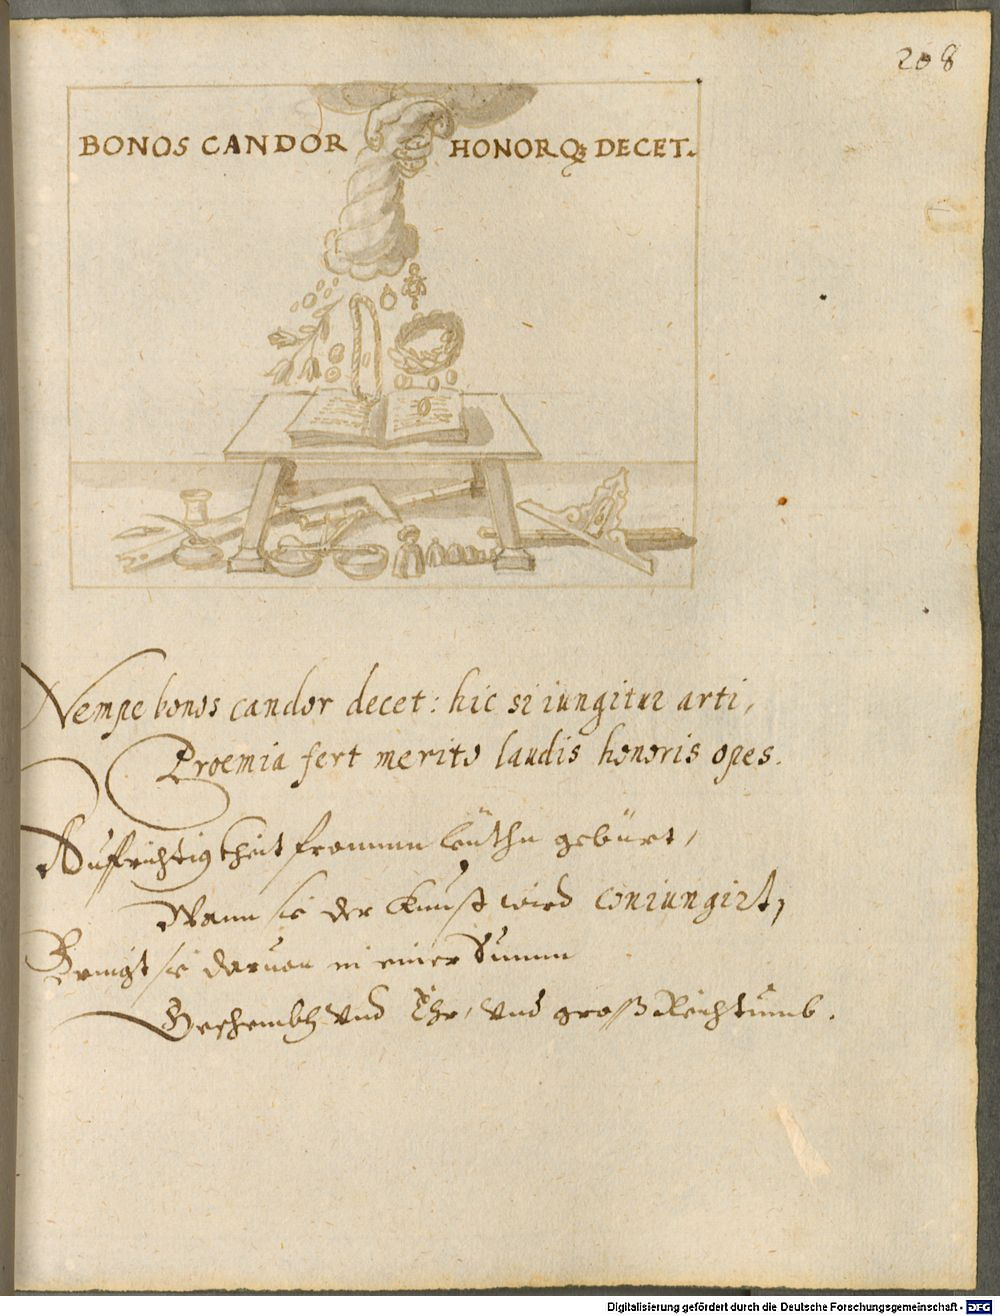 208
BONOS CANDOR HONORQ; DECET.
Nempe bonos candor decet: hic si iungitur arti,
Proemia fert merito laudis honoris opes.
Auffrichtigkheit frommen leüthn gebürt,
Wann sie der Kunst wird coniungirt,
Bringt sie daruon in einer Summ
und Ehr, und groß Reichtumb.
Digitalisierung gefördert durch die Deutsche Forschungsgemeinschaft - DFG